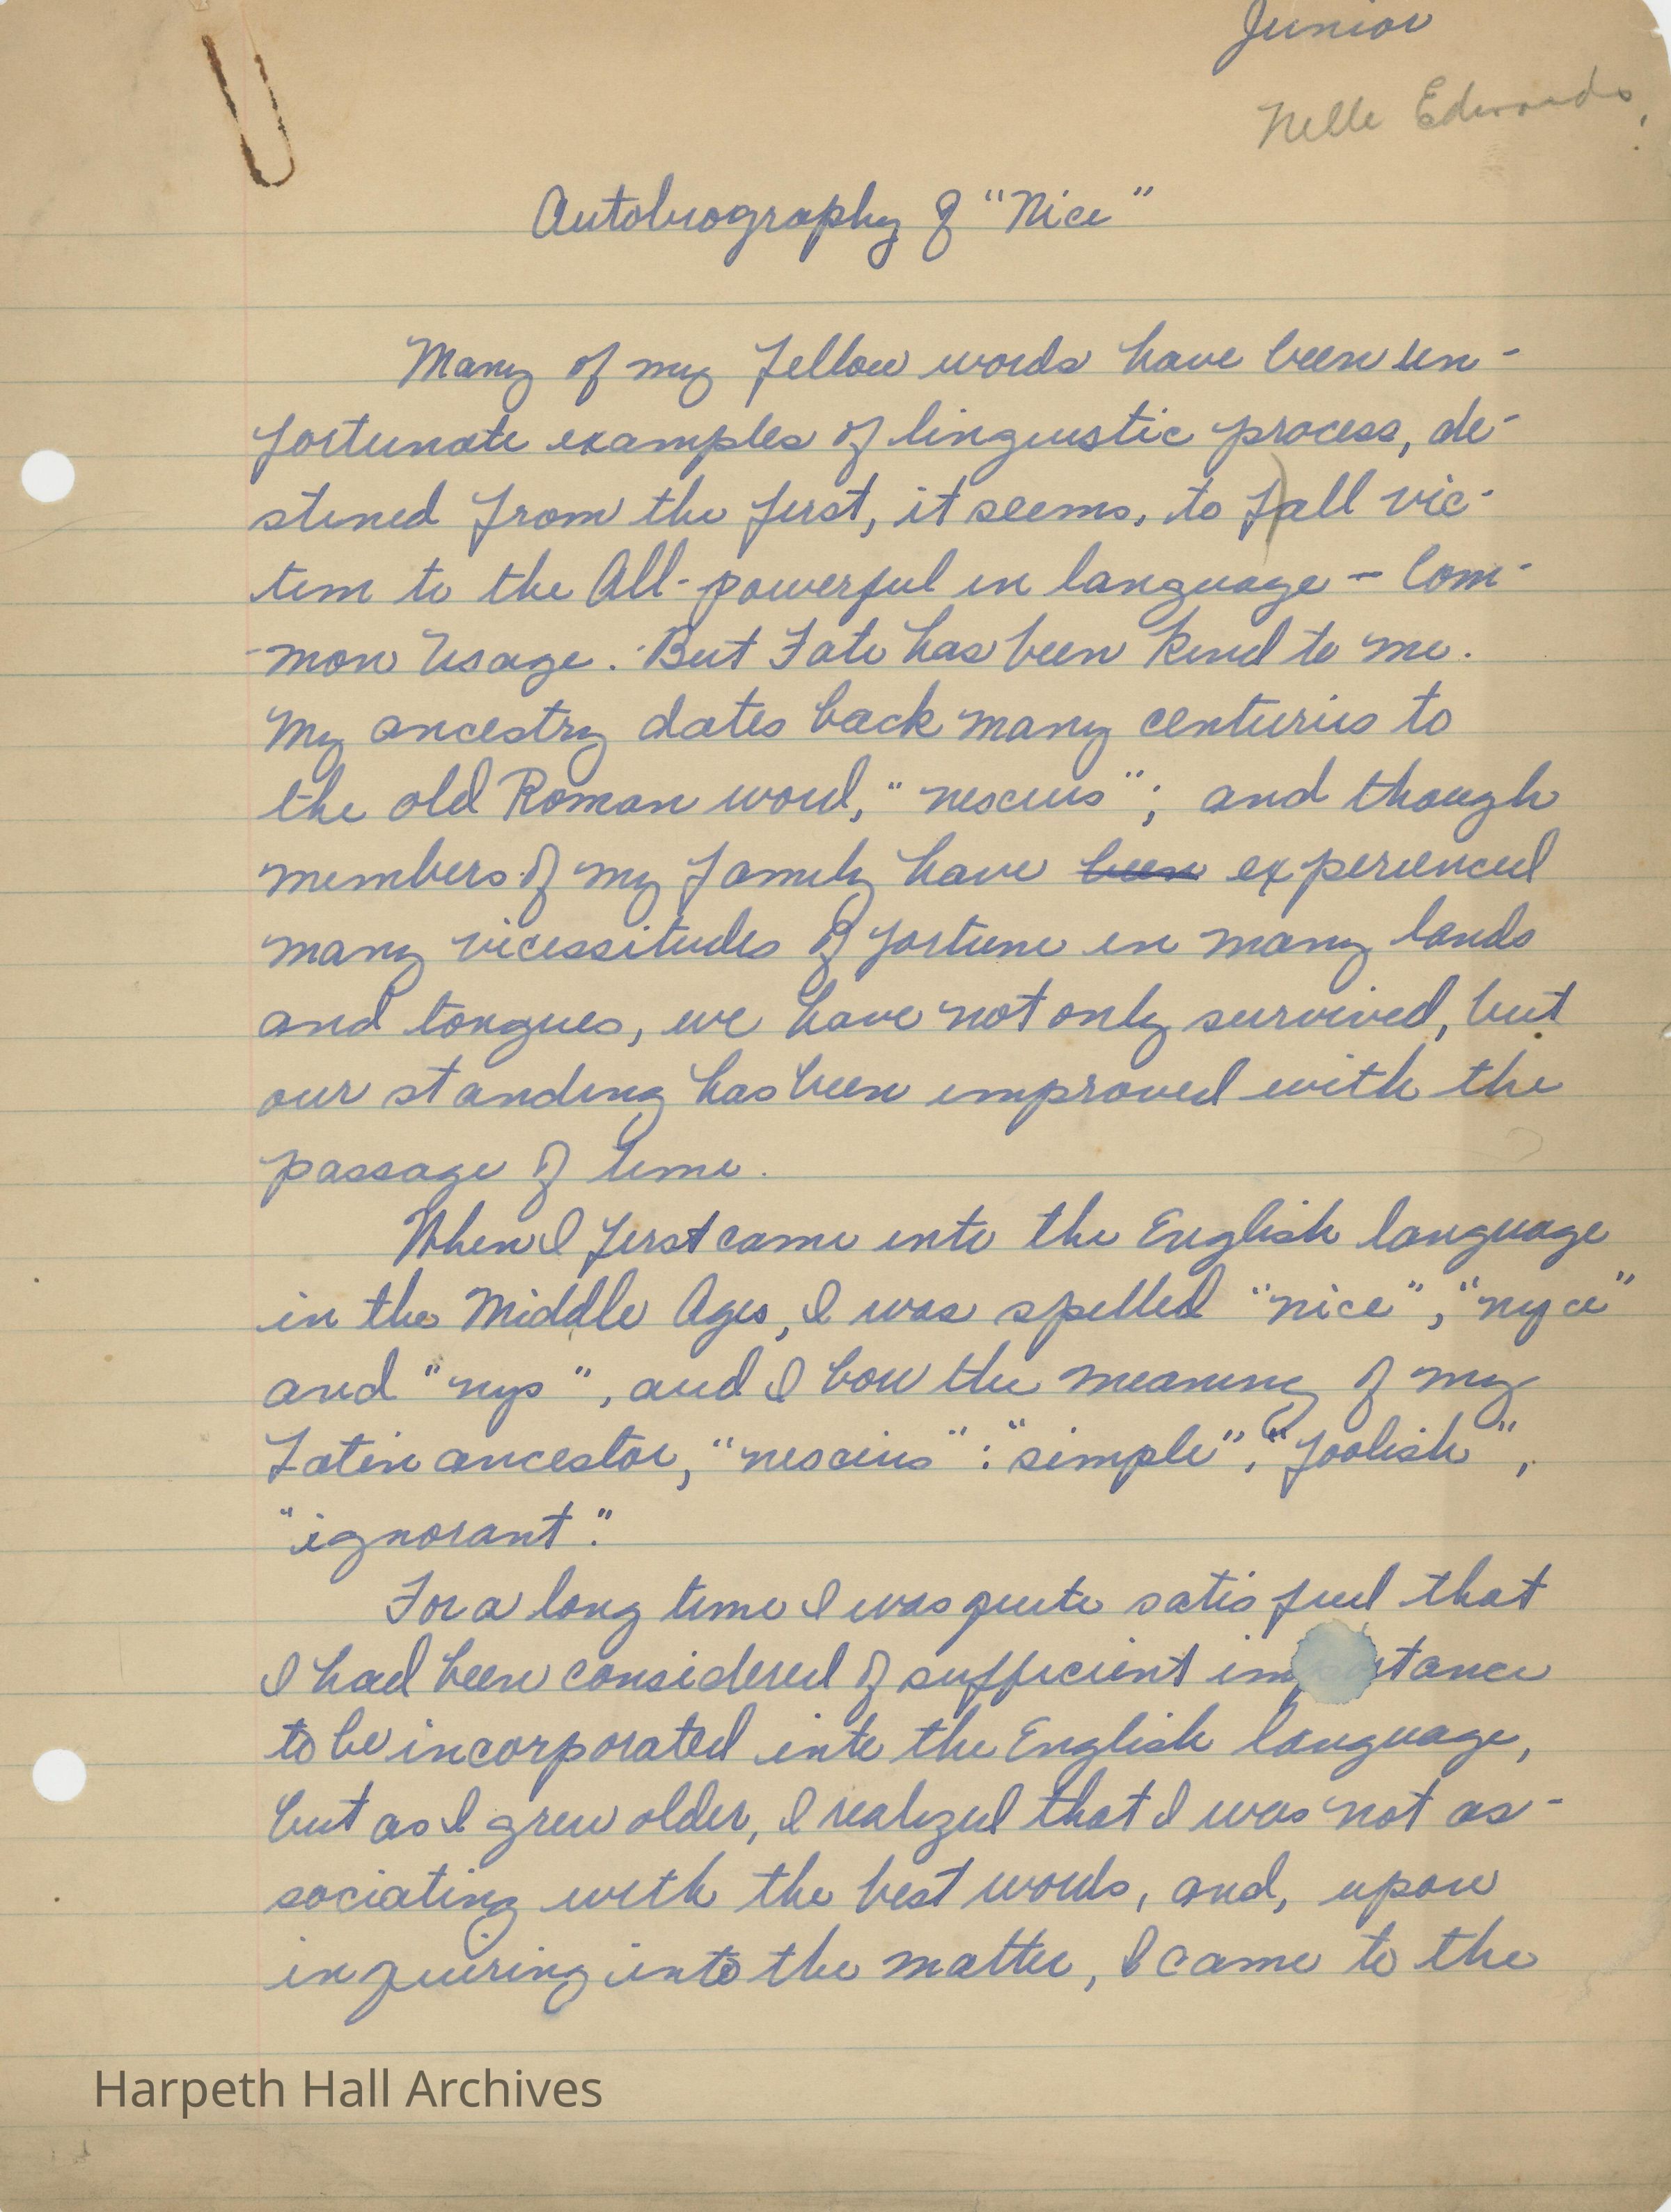 Junior
Nelle Edwards.
Autobiography of "Nice"
Many of my fellow words have been un-
fortunate examples of linguistic process, de-
stined from the first, it seems, to fall vic-
tim to the All-powerful in language - Com-
-mon Usage. But Fate has been kind to me.
My ancestry dates back many centuries to
the old Roman word, "nescius"; and though
members of my family have been experienced
many vicessitudes of fortune in many lands
and tongues, we have not only survived, but
our standing has been improved with the
passage of time.
When I first came into the English language
in the Middle Ages, I was spelled "nice", "nyce"
and "nys", and I bow the meaning of my
Latin ancestor, "nescius": "simple", "foolish",
"ignorant".
For a long time I was quite satisfied that
I had been considered of sufficient importance
to be incorporated into the English language,
but as I grew older, I realized that I was not as-
sociating with the best words, and, upon
inquiring into the matter, I came to the
Harpeth Hall Archives